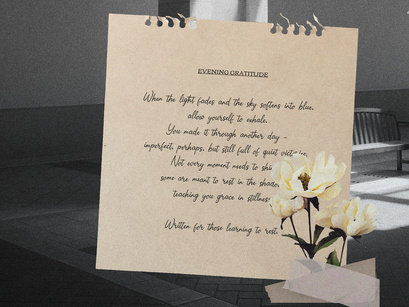 EVENING GRATITUDE
When the light fades and the sky softens into blue,
allow yourself to exhale.
You made it through another day –
imperfect, perhaps, but still full of quiet
Not every moment needs to
some are meant to rest in the
teaching you grace in
Written for those learning to rest.